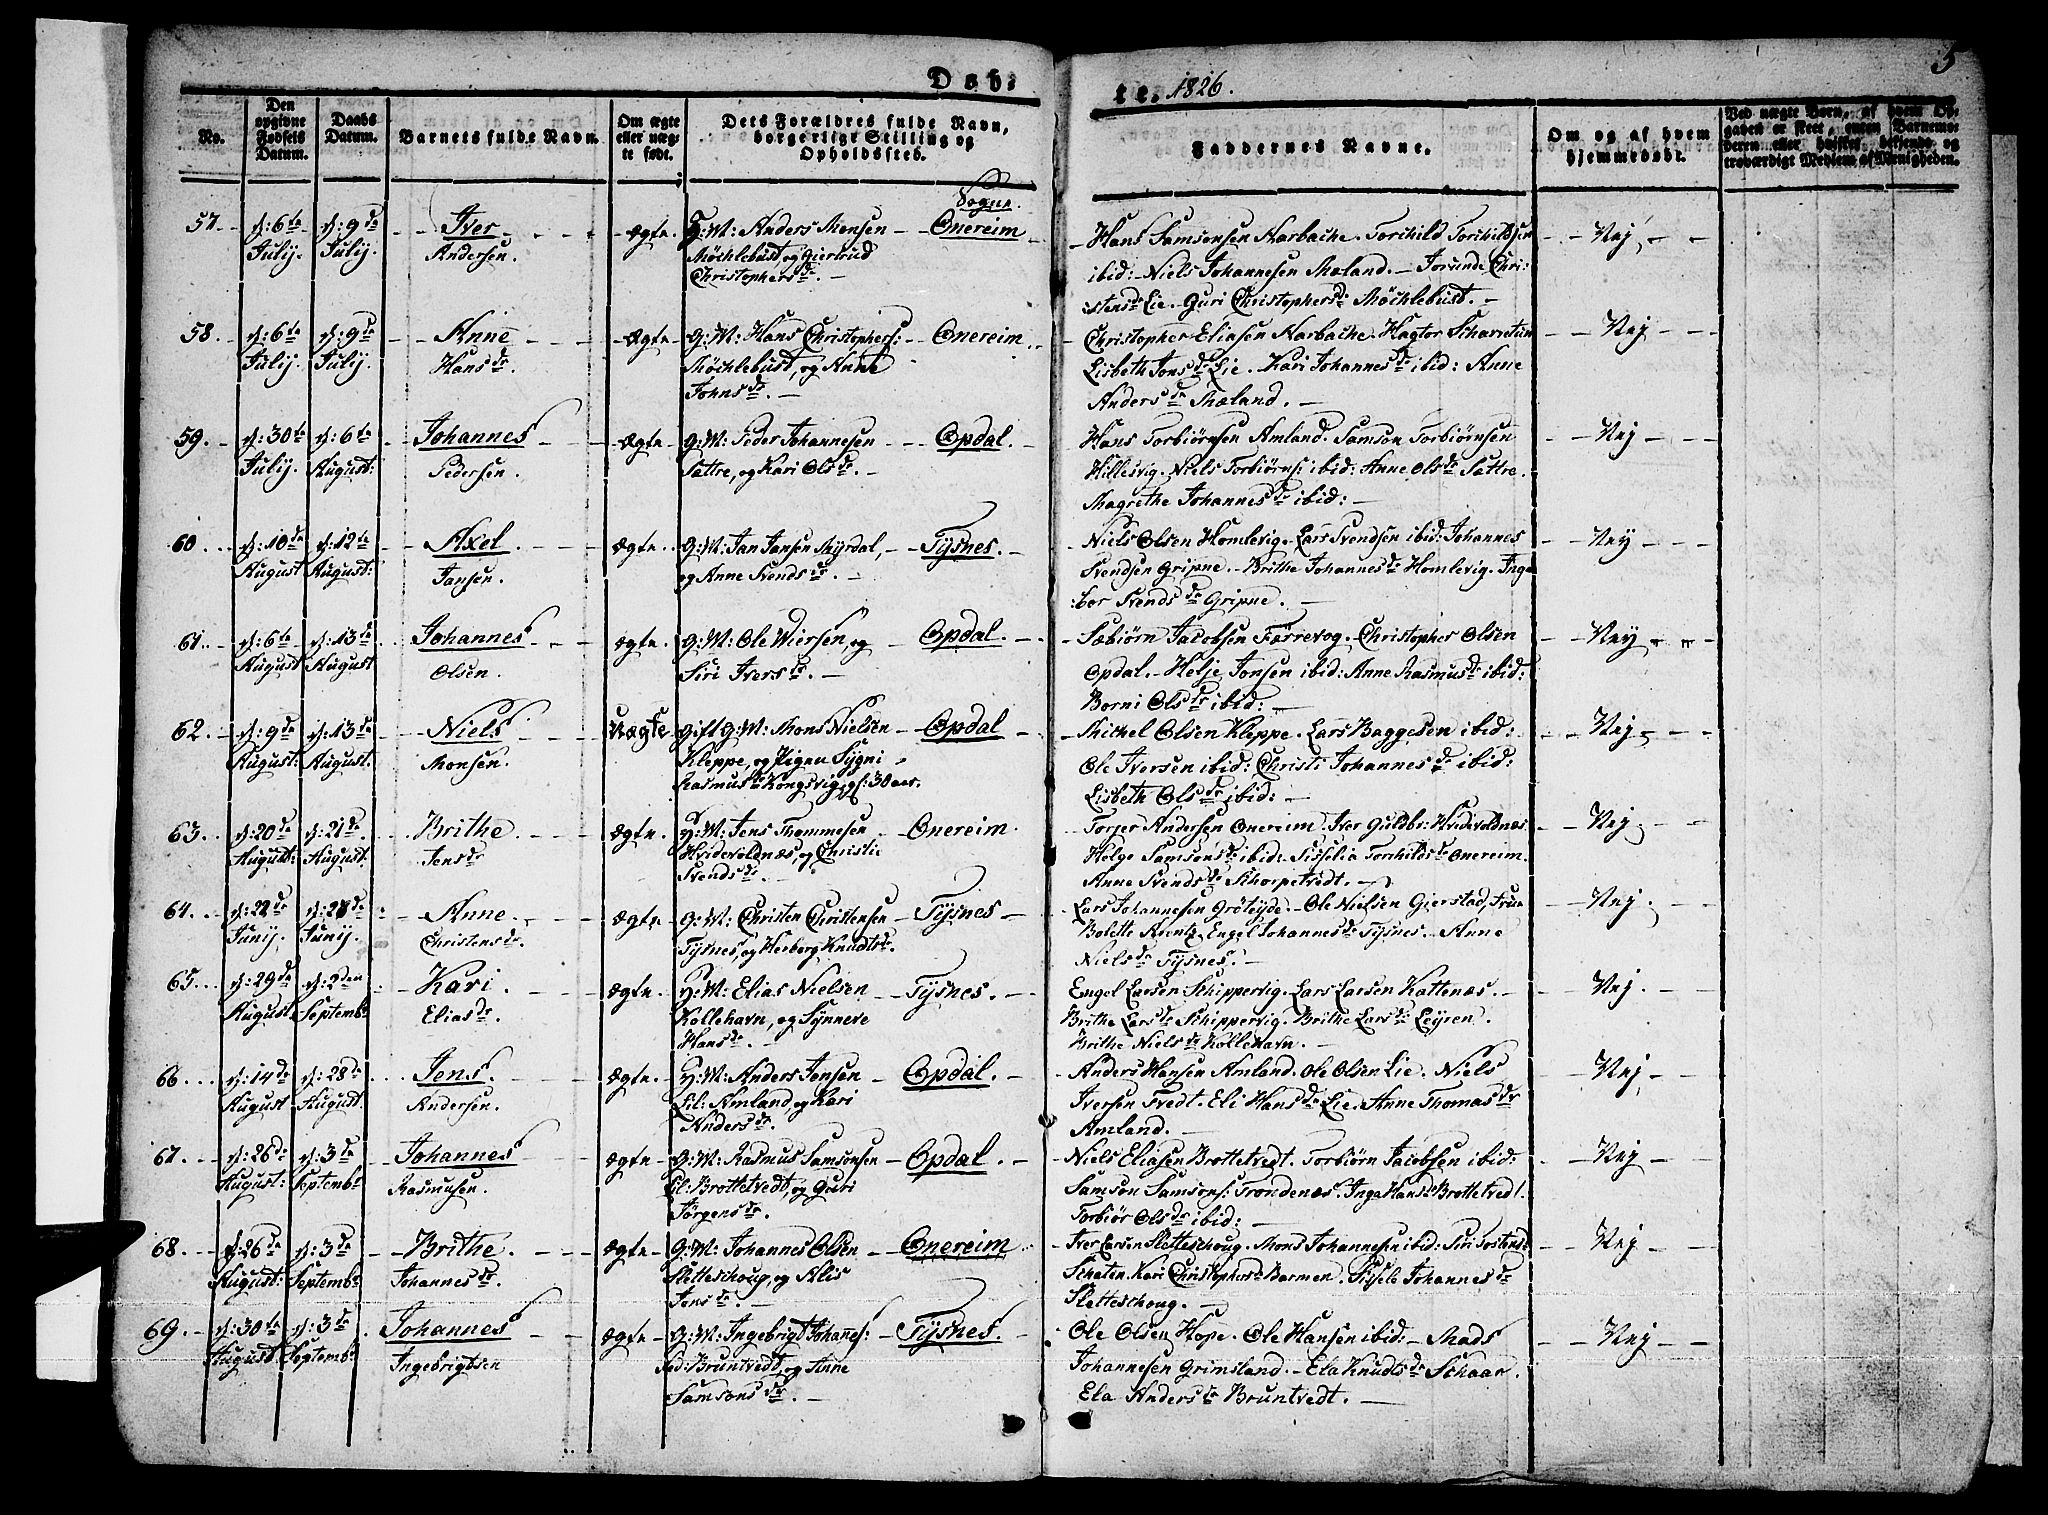 Døb-
te. 1826.
5
No.
Den opgivne Fødsels Datum.
Daabs Datum.
Barnets fulde Navn.
Om ægte eller uægte født.
Dets Forældres fulde Navn, borgerlige Stilling og Opholdssted.
Faddernes Navne.
Om og af hvem hjemmedøbt.
Sogne.
57. d: 6te Julij. d: 9de Julij. Iver Andersen. ægte. G:M: Anders Monsen Onereim
Møchlebust, og Giertrud
Christophersdr. —
Hans Samsonsen Aarbache. Torchild Torchildsen
ibid: Niels Johannesen Mæland. — Jorunde Chri-
stensdr Lie. Guri Christophersdr Møchlebust. —
Nej
58. d: 6te Julij. d: 9de Julij. Anne Hansdr. Ægte G:M: Hans Christophers: Onereim.
Møchlebust, og Anne
Johnsdr. —
Christopher Eliasen Aarbache. Hagtor Scharretun
Lisbeth Jonsdr Lie. Kari Johannesdr ibid: Anne
Andersdr Mæland. —
Nej
59. d: 30te Julij. d: 6te August: Johannes Pedersen. Ægte G:M: Peder Johannesen Opdal.
Sattre, og Kari Olsdr. —
Hans Torbiørnsen Amland. Samson Torbiørnsen
Hillesvig. Niels Torbiørns: ibid: Anne Olsdr Sattre.
Magrethe Johannesdr ibid:
Nej
60. d: 10de August d: 12te August: Axel Jansen. Ægte. G:M: Jan Jansen Myrdal, Tysnes.
og Anne Svendsdr. —
Niels Olsen Homlevig. Lars Svendsen ibid: Johannes
Svendsen Gripne. — Brithe Johannesdr Homlevig. Inge-
bor Svendsdr Gripne. —
Nej
61. d: 6te August d: 13de August Johannes Olsen. ægte. G:M: Ole Wiersen, og Opdal.
Siri Iversdr. —
Sæbiørn Jacobsen Færrevog. Christopher Olsen
Opdal. — Helje Jonsen ibid: Anne Rasmusdr ibid:
Borni Olsdr ibid: —
Nej
62. d: 9de August: d: 13de August. Niels Monsen. Uægte gift G:M: Mons Nielsen Opdal
Kleppe, og Pigen Sygni
Rasmusdr Kongsvig, gl: 30 aar.
Michel Olsen Kleppe. Lars Baggesen ibid:
Ole Iversen ibid: Christi Johannesdr ibid:
Lisbeth Olsdr ibid: —
Nej
63. d: 20de August: d: 21de August. Brithe Jensdr ægte. H:M: Jens Thommesen Onereim.
Hvidevoldnæs, og Christie
Svendsdr. —
Torjer Andersen Onereim. Iver Guldbr: Hvidevoldnæs.
Helge Samsonsdr ibid: Sisselia Torchildsdr Onereim.
Anne Svendsdr Schorpetvedt. —
Nej
64. d: 22de Junij. d: 28de Junij. Anne Christensdr. ægte. G:M: Christen Christensen Tysnes
Tysnes, og Herberg Knudtsdr.
Lars Johannesen Grøtøyde. Ole Nielsen Gierstad, Frue
Bolette Arentz, Engel Johannesdr Tysnes. Anne
Nielsdr Tysnes. —
Nej
65. d: 29de August. d: 2den Septembr Kari Eliasdr. ægte. H:M: Elias Nielsen Tysnes.
Kollehavn, og Synneve
Hansdr. —
Engel Larsen Schippervig. Lars Larsen Kattenæs. —
Brithe Larsdr Schippervig. Brithe Larsdr Leyren.
Brithe Nielsdr Kollehavn. —
Nej
66. d: 14de August d: 28de August Jens Andersen. ægte. H:M: Anders Jensen Opdal.
Lil: Amland og Kari
Andersdr. —
Anders Hansen Amland. Ole Olsen Lie. Niels
Iversen Tvedt. Eli Hansdr Lie. Anne Thomasdr
Amland. —
Nej
67. d: 26de August: d: 3de Septembr Johannes Rasmusen. ægte G:M: Rasmus Samsonsen Opdal.
Lil: Brottetvedt, og Guri
Jørgensdr.
Niels Eliasen Brottetvedt. Torbiørn Jacobsen ibid:
Samson Samsons: Trondenæs. Inga Hansdr Brottetvedt.
Torbiør Olsdr ibid: —
Nej
68. d: 26de August: d: 3de Septembr Brithe Johannesdr ægte G:M: Johannes Olsen Onereim
Sletteschoug, og Alis
Jensdr. —
Iver Larsen Sletteschoug. Mons Johannesen ibid: Siri Tostensdr
Schaten. Kari Christophersdr Barmen. Sissele Johannesdr
Sletteschoug. —
Nej
69. d: 30te August d: 3de Septembr Johannes Ingebrigtsen ægte G:M: Ingebrigt Johannes: Tysnes.
Bruntvedt, og Anne
Samsonsdr. —
Ole Olsen Hope. Ole Hansen ibid: — Mads
Johannesen Grimsland. — Ela Knudtsdr Schaar
Ela Andersdr Bruntvedt. —
Nej